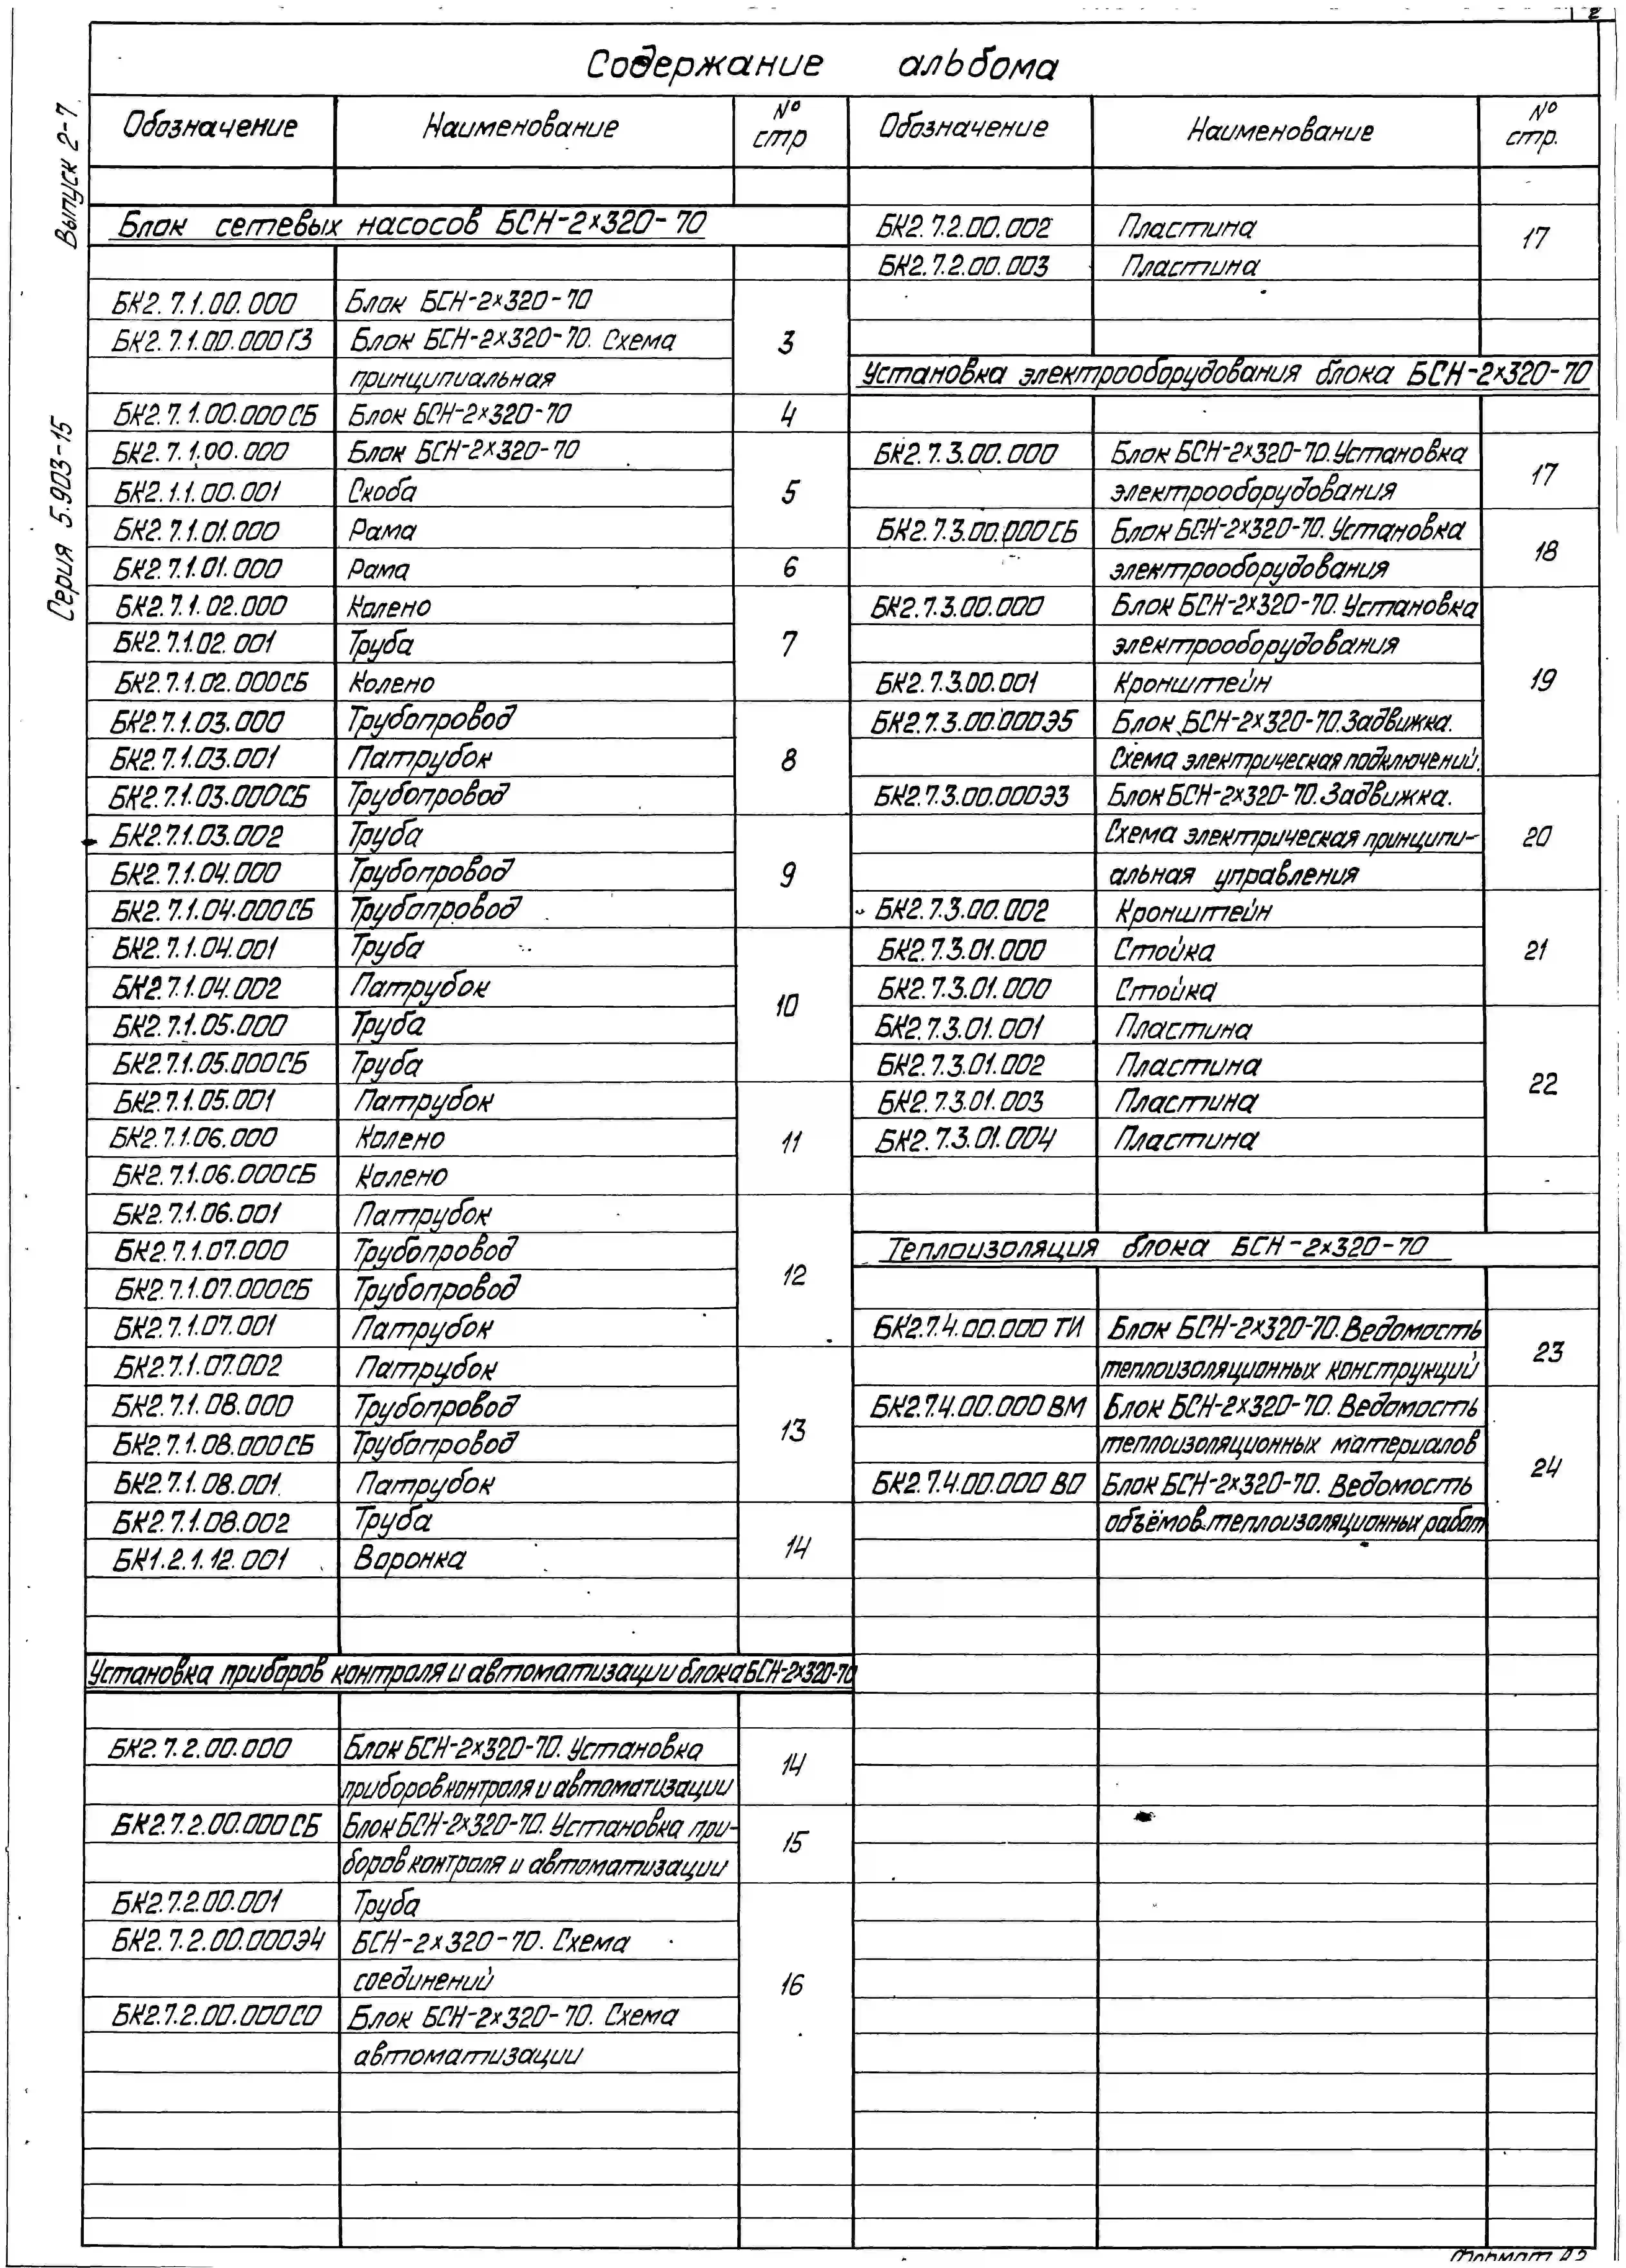 2
Содержание альбома
Выпуск 2-7
Серия 5.903-15
Обозначение Наименование № стр
Блок сетевых насосов БСН-2х320-70
БК2.7.1.00.000 Блок БСН-2х320-70
БК2.7.1.00.000ГЗ Блок БСН-2х320-70. Схема 3
принципиальная
БК2.7.1.00.000СБ Блок БСН-2х320-70 4
БК2.7.1.00.000 Блок БСН-2х320-70
БК2.1.1.00.001 Скоба 5
БК2.7.1.01.000 Рама
БК2.7.1.01.000 Рама 6
БК2.7.1.02.000 Колено
БК2.7.1.02.001 Труба 7
БК2.7.1.02.000СБ Колено
БК2.7.1.03.000 Трубопровод
БК2.7.1.03.001 Патрубок 8
БК2.7.1.03.000СБ Трубопровод
БК2.7.1.03.002 Труба
БК2.7.1.04.000 Трубопровод 9
БК2.7.1.04.000СБ Трубопровод
БК2.7.1.04.001 Труба
БК2.7.1.04.002 Патрубок 10
БК2.7.1.05.000 Труба
БК2.7.1.05.000СБ Труба
БК2.7.1.05.001 Патрубок
БК2.7.1.06.000 Колено 11
БК2.7.1.06.000СБ Колено
БК2.7.1.06.001 Патрубок
БК2.7.1.07.000 Трубопровод 12
БК2.7.1.07.000СБ Трубопровод
БК2.7.1.07.001 Патрубок
БК2.7.1.07.002 Патрубок
БК2.7.1.08.000 Трубопровод 13
БК2.7.1.08.000СБ Трубопровод
БК2.7.1.08.001 Патрубок
БК2.7.1.08.002 Труба
БК1.2.1.12.001 Воронка 14
Установка приборов контроля и автоматизации блока БСН-2х320-70
БК2.7.2.00.000 Блок БСН-2х320-70. Установка 14
приборов контроля и автоматизации
БК2.7.2.00.000СБ Блок БСН-2х320-70. Установка при- 15
боров контроля и автоматизации
БК2.7.2.00.001 Труба
БК2.7.2.00.000Э4 БСН-2х320-70. Схема
соединений 16
БК2.7.2.00.000СО Блок БСН-2х320-70. Схема
автоматизации
Обозначение Наименование № стр.
БК2.7.2.00.002 Пластина 17
БК2.7.2.00.003 Пластина
Установка электрооборудования блока БСН-2х320-70
БК2.7.3.00.000 Блок БСН-2х320-70. Установка 17
электрооборудования
БК2.7.3.00.000СБ Блок БСН-2х320-70. Установка 18
электрооборудования
БК2.7.3.00.000 Блок БСН-2х320-70. Установка
электрооборудования
БК2.7.3.00.001 Кронштейн 19
БК2.7.3.00.000Э5 Блок БСН-2х320-70. Задвижка.
Схема электрическая подключений.
БК2.7.3.00.000ЭЗ Блок БСН-2х320-70. Задвижка.
Схема электрическая принципи- 20
альная управления
БК2.7.3.00.002 Кронштейн
БК2.7.3.01.000 Стойка 21
БК2.7.3.01.000 Стойка
БК2.7.3.01.001 Пластина
БК2.7.3.01.002 Пластина 22
БК2.7.3.01.003 Пластина
БК2.7.3.01.004 Пластина
Теплоизоляция блока БСН-2х320-70
БК2.7.4.00.000 ТИ Блок БСН-2х320-70. Ведомость 23
теплоизоляционных конструкций
БК2.7.4.00.000 ВМ Блок БСН-2х320-70. Ведомость
теплоизоляционных материалов 24
БК2.7.4.00.000 ВО Блок БСН-2х320-70. Ведомость
объёмов теплоизоляционных работ
Формат А2